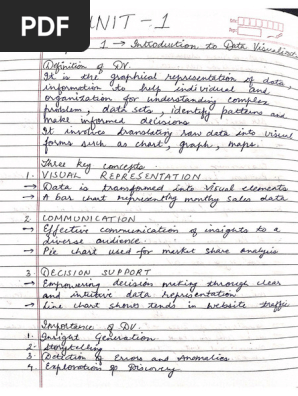 PDF
UNIT - 1
1 → Introduction to Data Visualization
Definition of DV.
It is the graphical representation of data,
information to help individual and
organization for understanding complex
problem, data sets, identify patterns and
make informed decisions
It involves translating raw data into visual
forms such as chart, graph, maps.
Three key concepts
1. VISUAL REPRESENTATION
→ Data is transformed into visual elements
→ A bar chart representing monthly sales data
2. COMMUNICATION
→ Effective communication of insights to a
diverse audience.
→ Pie chart used for market share analysis
3. DECISION SUPPORT
→ Empowering decision making through clear
and intuitive data representation
→ Line chart shows tends in website traffic
Importance of DV.
1. Insight Generation
2. Storytelling
3. Detection of Errors and Anomalies
4. Exploration & Discovery